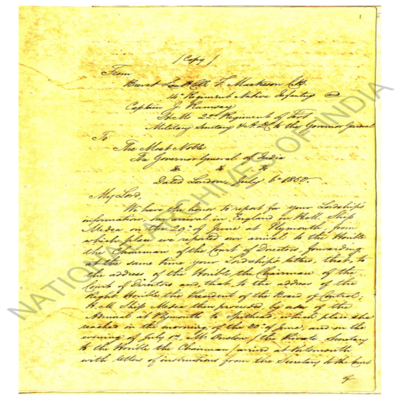 [Copy]
From
Brevet Lieut Col F. Mackeson CB
14th Regiment Native Infantry and
Captain J. Ramsay
H.M. 22nd Regiment of Foot
Military Secretary & A.D.C. to the Governor General
To
The Most Noble
The Governor General of India
&c &c &c
Dated London July 6th 1850.
My Lord,
We have the honor to report for your Lordship's
information our arrival in England in Her M. Ship
Medea on the 29th of June at Plymouth, from
which place we reported our arrival to the Honble
the Chairman of the Court of Directors, forwarding
at the same time your Lordship's letters, that to
the address of the Honble the Chairman of the
Court of Directors and that to the address of the
Right Honble the President of the Board of Control.
H.M. Ship Medea then proceeded by order of the
Admiral at Plymouth to Spithead which place she
reached on the morning of the 30th of June, and on the
evening of July 1st Mr. Onslow, the Private Secretary
to the Honble the Chairman arrived at Portsmouth
with letter of instructions from the Secretary to the Court
of
NATIONAL ARCHIVES OF INDIA